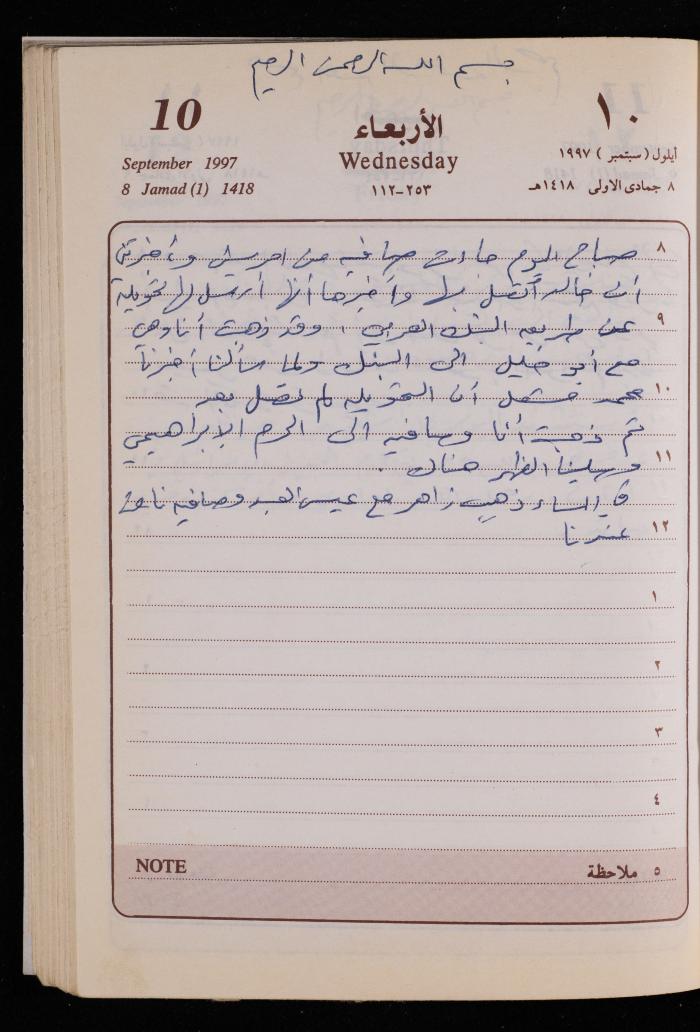 بسم الله الرحمن الرحيم
10
September 1997
8 Jamad (1) 1418
الأربعاء
Wednesday
١١٢-٢٥٣
١٠
أيلول (سبتمبر) ١٩٩٧
٨ جمادى الاولى ١٤١٨هـ
٨ صباح اليوم جاءت صافيه من وأخبرتني
أن خالد اتصل بها وأخبرها أنه أرسل لها تحويلة
٩ عن طريق البنك العربي ، وقد ذهبت أنا وهي
مع أبو خليل الى البنك ولما سألنا أخبرنا
١٠ محمد أن التحويله لم تصل بعد
ثم ذهبت أنا وصافيه الى الحرم الابراهيمي
١١ وصلينا الظهر هناك .
في المساء ذهب زاهر مع عيسى العبد وصافيه نامت
١٢ عندنا
١
٢
٣
٤
NOTE
٥ ملاحظة